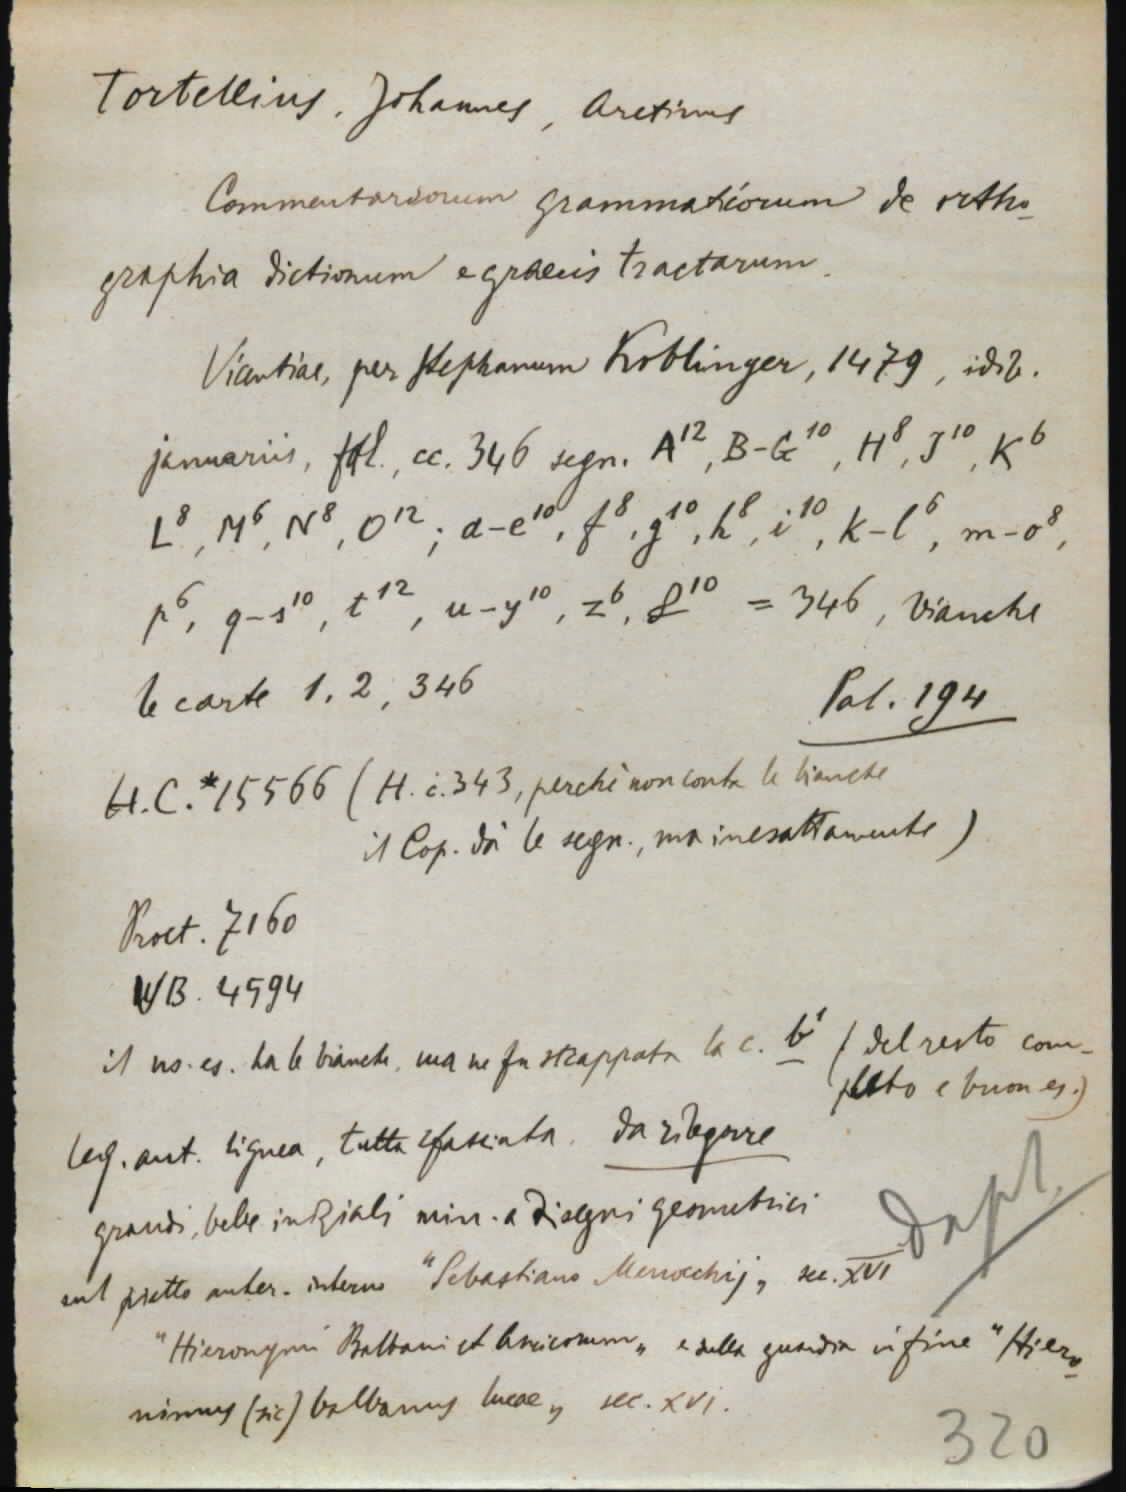 Tortellius, Johannes, Aretinus
Commentariorum grammaticorum de ortho-
graphia dictionum e graecis tractarum.
Vicentiae, per Stephanum Koblinger, 1479, idib.
januariis, fol., cc. 346 segn. A¹², B-G¹⁰, H⁸, J¹⁰, K⁶
L⁸, M⁶, N⁸, O¹²; a-e¹⁰, f⁸, g¹⁰, h⁸, i¹⁰, k-l⁶, m-o⁸,
p⁶, q-s¹⁰, t¹², u-y¹⁰, z⁶, &¹⁰ = 346, bianche
le carte 1, 2, 346
Pal. 194
H.C.*15566 (H. c. 343, perchè non conta le bianche
il Cop. dà le segn., ma inesattamente)
Proct. 7160
VB. 4594
il ns. es. ha le bianche, ma ne fu strappata la c. b¹ (del resto com-
pleto e buon es.)
leg. ant. lignea, tutta sfasciata. da rilegare
grandi, belle iniziali min. a disegni geometrici
sul piatto anter. interno "Sebastiano Menocchij„ sec. XVI
"Hieronymi Balbani et amicorum„ e sulla guardia in fine "Hiero-
nimus (sic) balbanus lucae„ sec. XVI.
Dupl.
320